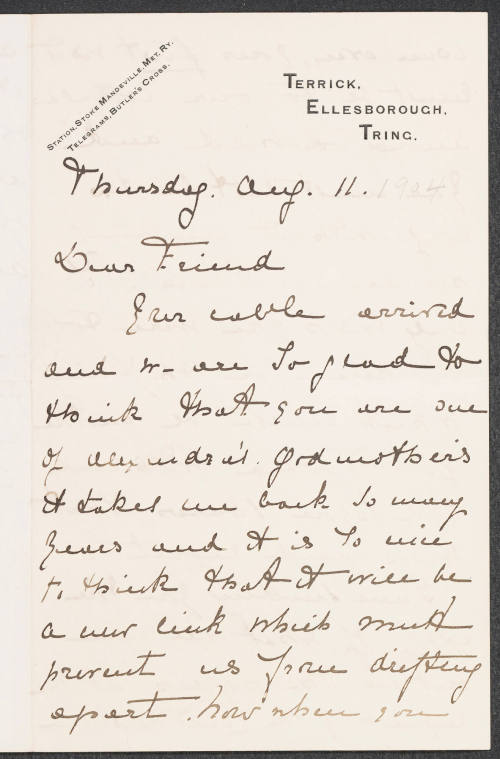 Station, Stoke Mandeville, Met. Ry.
Telegrams, Butler's Cross.
Terrick,
Ellesborough,
Tring.
Thursday. Aug. 11. 1904
Dear Friend
Yr cable arrived
and we are so glad to
think that you are one
of Alexandra's. Godmothers
It takes me back so many
years and it is so nice
to think that it will be
a new link which must
prevent us from drifting
apart. how when you